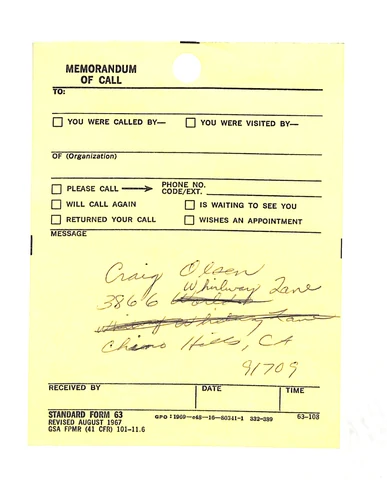 MEMORANDUM
OF CALL
TO:
YOU WERE CALLED BY— YOU WERE VISITED BY—
OF (Organization)
PLEASE CALL → PHONE NO.
CODE/EXT.
WILL CALL AGAIN IS WAITING TO SEE YOU
RETURNED YOUR CALL WISHES AN APPOINTMENT
MESSAGE
Craig Olsen
3866 Whirlway Lane
Chino Hills, CA
91709
RECEIVED BY DATE TIME
STANDARD FORM 63 GPO : 1969—c48—16—80341-1 332-389 63-108
REVISED AUGUST 1967
GSA FPMR (41 CFR) 101-11.6